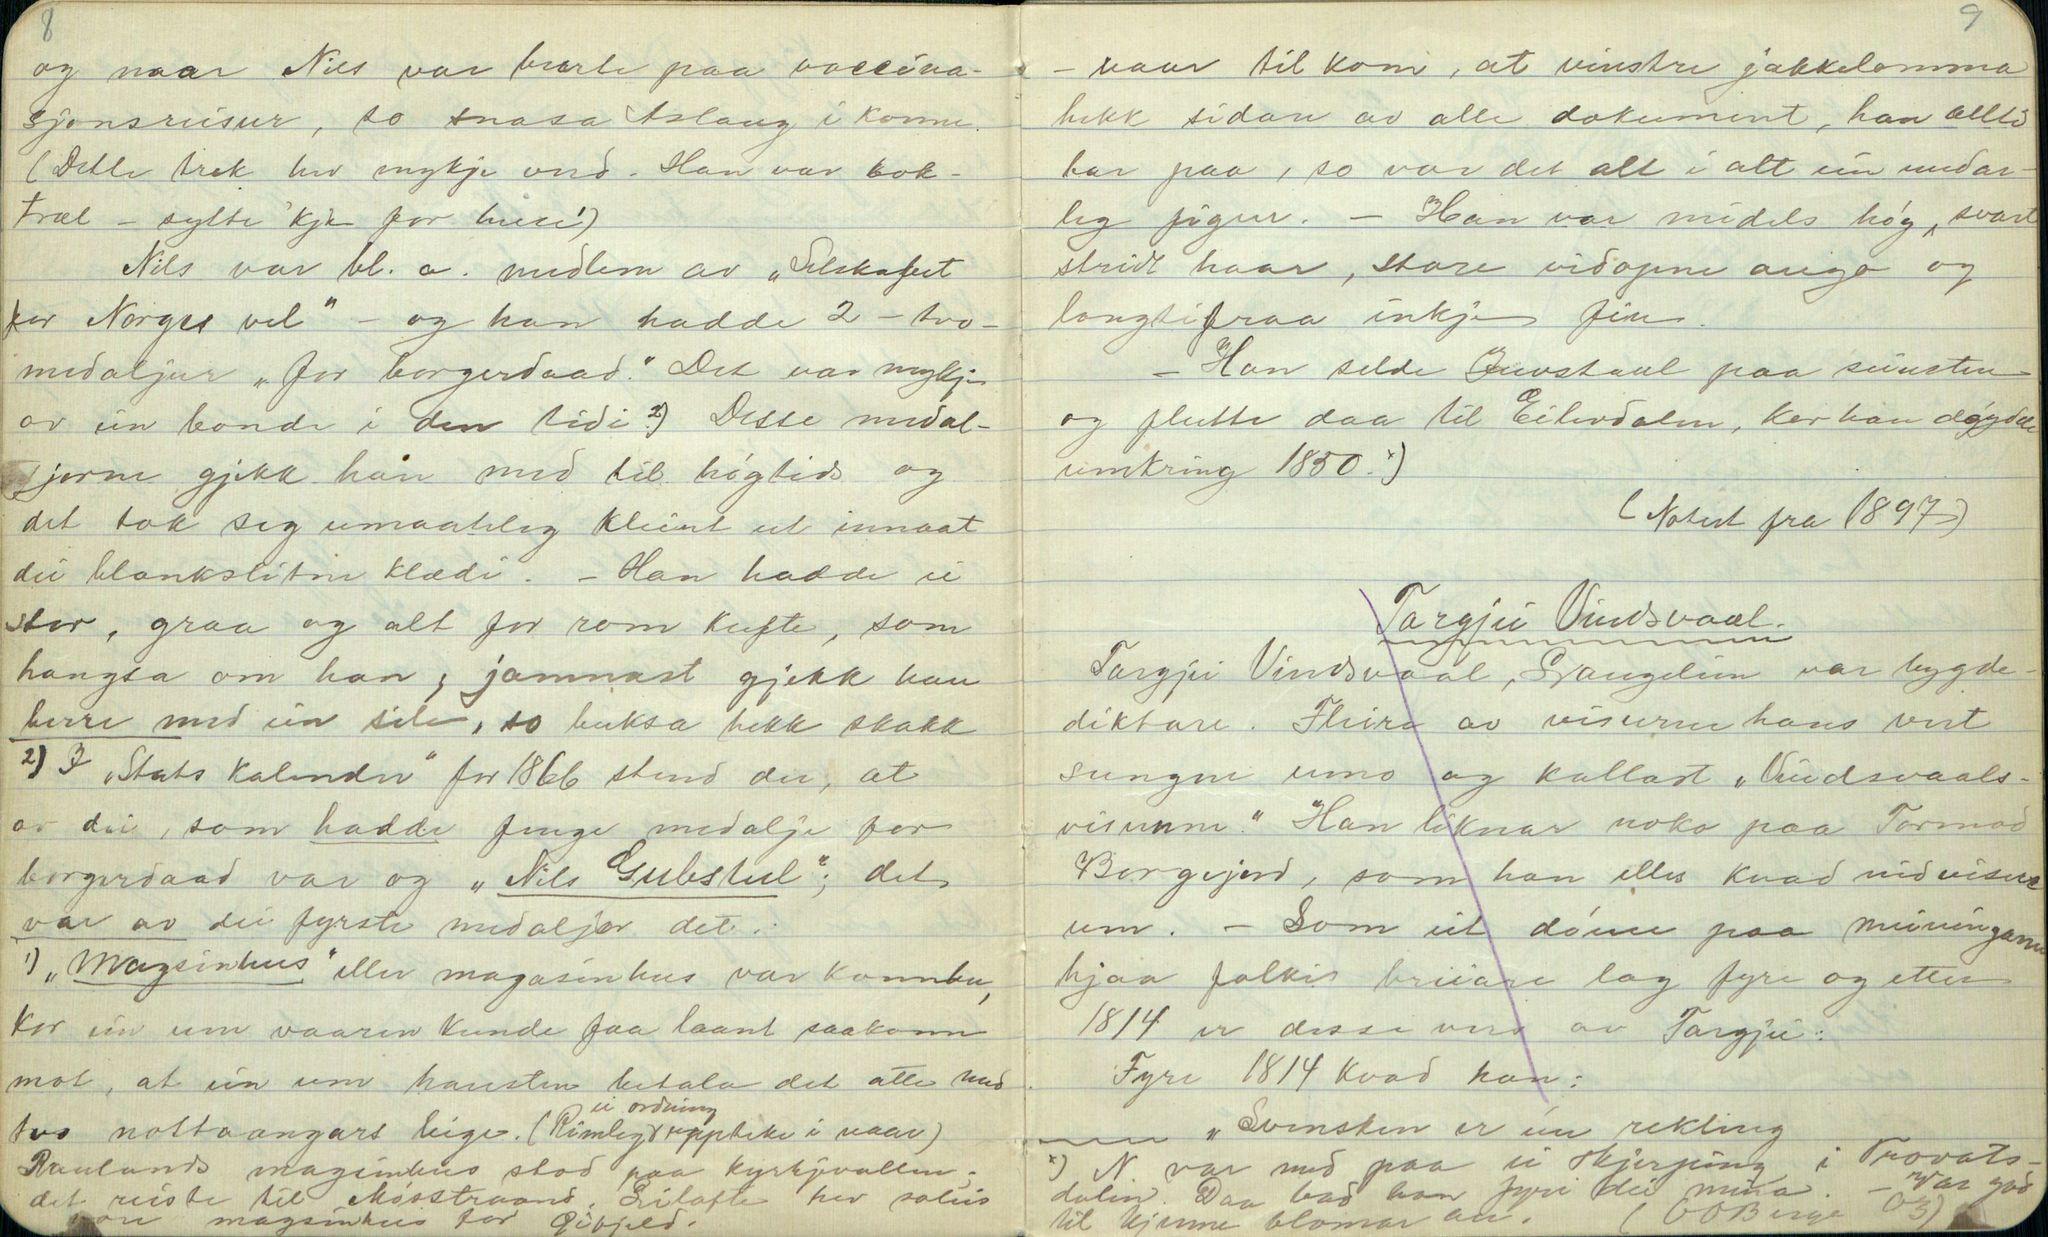 8
og naar Nils var burte paa vaccina-
sjonsreisur, so snasa Aslaug i konne.
(Dette trek her mykje verd. Han var bok-
træl – sylte 'kje for here!)
Nils var bl. a. medlem av „Selskabet
for Norges vel" – og han hadde 2 – tvo –
medaljur „for borgerdaad." Det var mykje
av ein bonde i den tidi. 2) Desse medal-
jorne gjekk han med til høgtids og
det tok seg umaateleg kleint ut innaat
dei blankslitne klædi. – Han hadde ei
stor, graa og alt for rom kufte, som
hangsa om han; jamnast gjekk han
berre med ein sele, so buksa hekk skakk
2) I „Stats kalender" for 1866 stend der, at
av dei, som hadde fenge medalje for
borgerdaad var og „Nils Gubstul"; det
var av dei fyrste medaljer det.
1) „Magsinhus" eller magasinhus var kornbu,
kor ein um vaaren kunde faa laant saakorn
mot, at ein um hausten betala det atte med
tvo nottaangars leige. (Rimeleg ei ordning uppteke i naar)
Raulands magsinhus stod paa kyrkjevollen;
det reiste til Møsstraand. Leilofte her soleis
vore magsinhus for Øifjeld.
9
– naar til kom, at vinstre jakkelomma
hekk sidare av alle dokument, han alltid
bar paa, so var det alt i alt ein underleg
leg figur. – Han var midels høg, svart
stridt haar, store vidopne augo og
langtifraa inkje fin.
– Han selde Guvstaul paa seinsten
og flutte daa til Eiterdalen, kor han døydde
umkring 1850. x)
(Notert fra 1897)
Targjei Vindsvaal.
Targjei Vindsvaal, Grungedin var bygde-
diktare. Fleire av visurne hans vert
sungne eno og kallast „Vindsvaals-
visunne." Han liknar noko paa Tormod
Borgejord, som han elles kvad nidvisur
um. – Som eit døme paa meiningann
hjaa folki breiare lag fyre og etter
1814 er desse vers av Targjei:
Fyre 1814 kvad han:
„Svensken er ein rekling
x) N. var med paa ei skjerping i Trovats-
dalen. Daa bad han fyre dei mina. – Var god
til kjenne blomar au. (O O Berge 03)